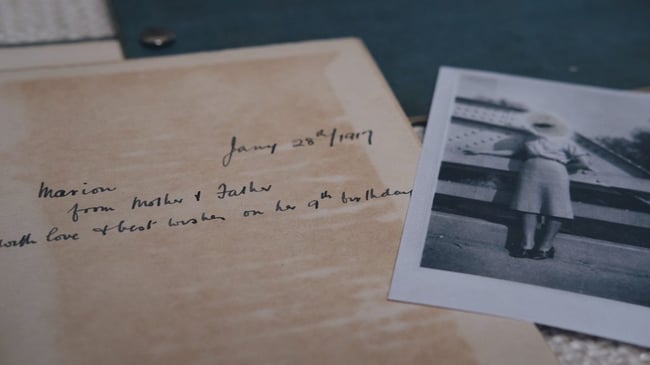 Jany 28th/1917
Marion
from Mother & Father
with love & best wishes on her 9th birthday